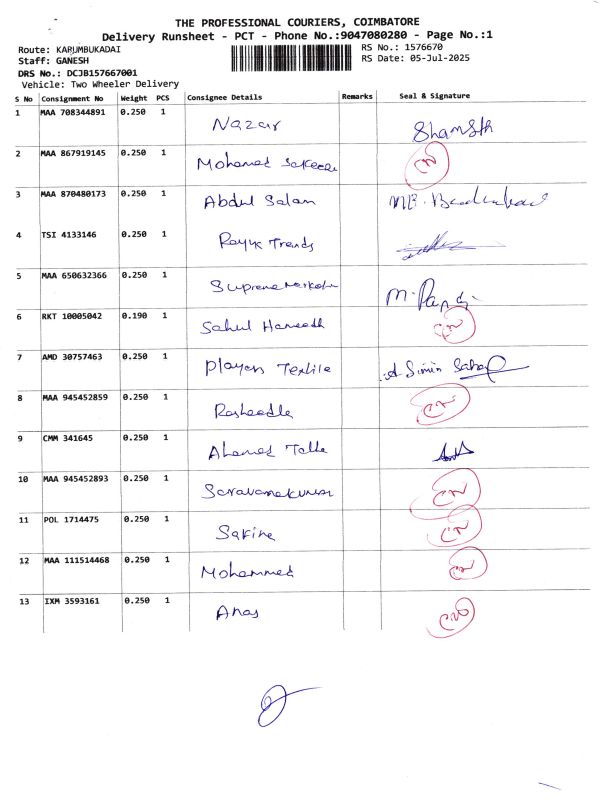 THE PROFESSIONAL COURIERS, COIMBATORE
Delivery Runsheet - PCT - Phone No.:9047080280 - Page No.:1
Route: KARUMBUKADAI RS No.: 1576670
Staff: GANESH RS Date: 05-Jul-2025
DRS No.: DCJB157667001
Vehicle: Two Wheeler Delivery
S No Consignment No Weight PCS Consignee Details Remarks Seal & Signature
1 MAA 708344891 0.250 1 Nazar
2 MAA 867919145 0.250 1 Mohamed CN
3 MAA 870480173 0.250 1 Abdul Salam
4 TSI 4133146 0.250 1 Trends
5 MAA 650632366 0.250 1
6 RKT 10005042 0.190 1 Sahul Hameedh CN
7 AMD 30757463 0.250 1 Players Textile
8 MAA 945452859 0.250 1 Rasheedha CN
9 CMM 341645 0.250 1 Ahamed
10 MAA 945452893 0.250 1 Saravanakumar CN
11 POL 1714475 0.250 1 CN
12 MAA 111514468 0.250 1 Mohammed CN
13 IXM 3593161 0.250 1 Anas